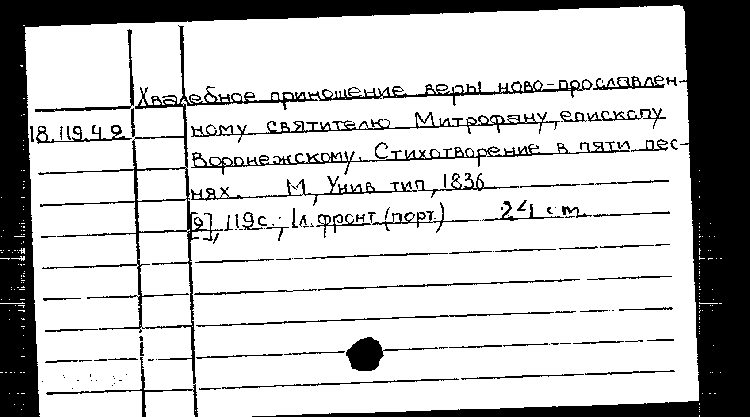 Хвалебное приношение веры ново-прославлен-
18.119.4.9 ному святителю Митрофану, епископу
Воронежскому. Стихотворение в пяти пес-
нях. М., Унив. тип., 1836
[2], 119 с.; 1 л. фронт. (порт.) 24 cm.